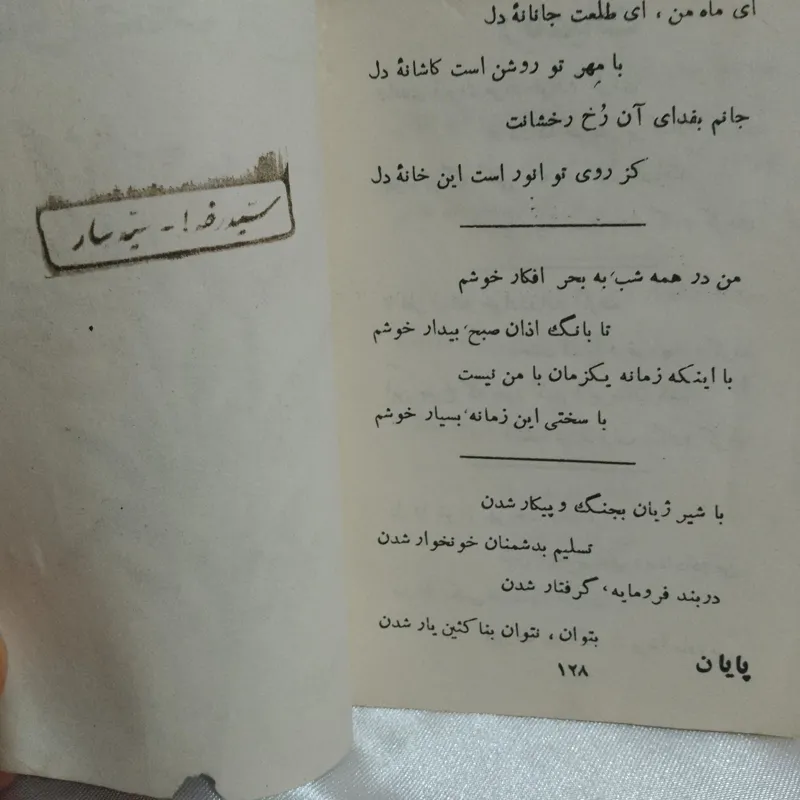 ای ماه من ، ای طلعت جانانهٔ دل
با مِهر تو روشن است کاشانهٔ دل
جانم بفدای آن رُخ رخشانت
کز روی تو انور است این خانهٔ دل
من در همه شب، به بحر افکار خوشم
تا بانگ اذان صبح، بیدار خوشم
با اینکه زمانه یکزمان با من نیست
با سختی این زمانه، بسیار خوشم
با شیر ژیان بجنگ و پیکار شدن
تسلیم بدشمنان خونخوار شدن
دربند فرومایه، گرفتار شدن
بتوان ، نتوان بناکثین یار شدن
پایان
۱۲۸